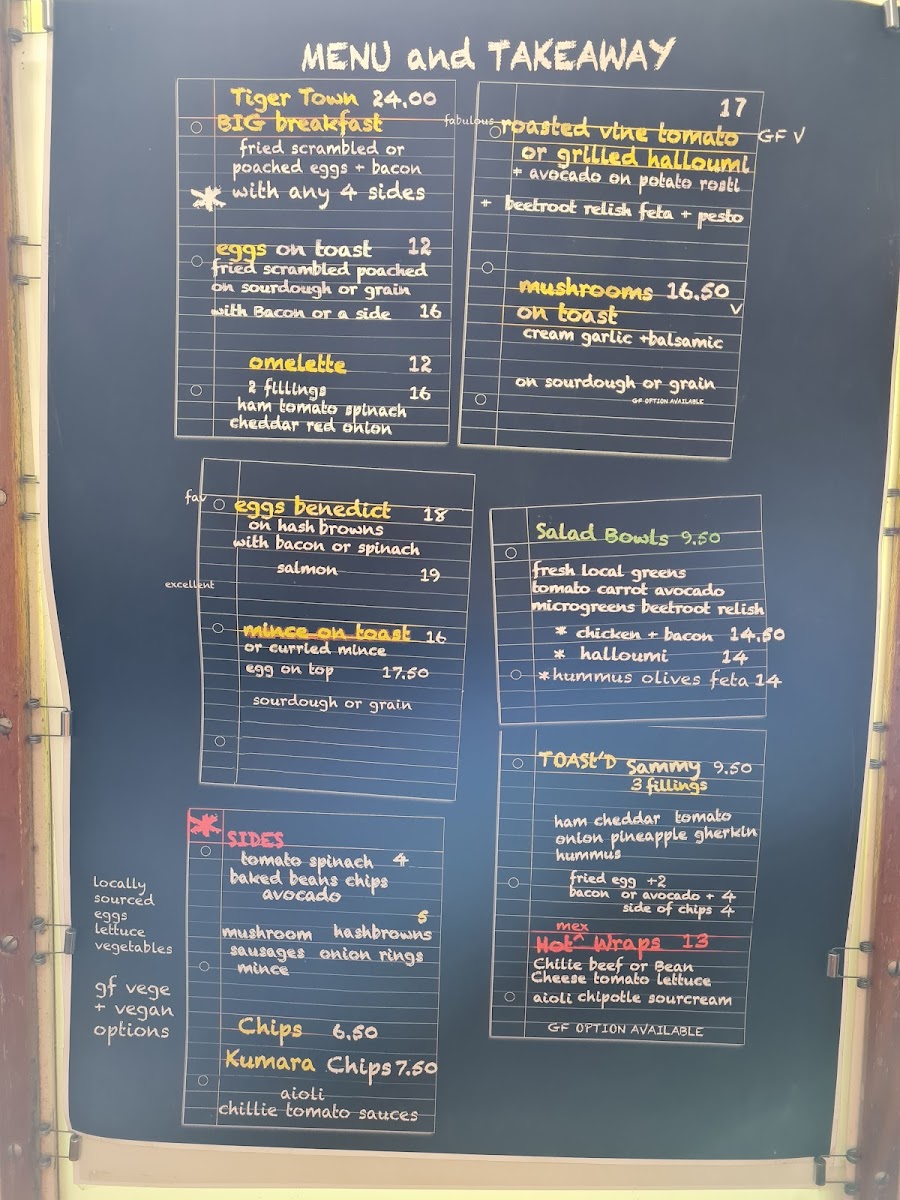 MENU and TAKEAWAY
Tiger Town 24.00
BIG breakfast
fried scrambled or
poached eggs + bacon
* with any 4 sides
eggs on toast 12
fried scrambled poached
on sourdough or grain
with Bacon or a side 16
omelette 12
2 fillings 16
ham tomato spinach
cheddar red onion
17
fabulous roasted vine tomato GF V
or grilled halloumi
+ avocado on potato rosti
+ beetroot relish feta + pesto
mushrooms 16.50
V
on toast
cream garlic +balsamic
on sourdough or grain
GF OPTION AVAILABLE
fav
eggs benedict 18
on hash browns
with bacon or spinach
salmon 19
excellent
mince on toast 16
or curried mince
egg on top 17.50
sourdough or grain
Salad Bowls 9.50
fresh local greens
tomato carrot avocado
microgreens beetroot relish
* chicken + bacon 14.50
* halloumi 14
* hummus olives feta 14
TOAST'D Sammy 9.50
3 fillings
ham cheddar tomato
onion pineapple gherkin
hummus
fried egg +2
bacon or avocado + 4
side of chips 4
mex
Hot^ Wraps 13
Chilie beef or Bean
Cheese tomato lettuce
aioli chipotle sourcream
GF OPTION AVAILABLE
* SIDES
tomato spinach 4
baked beans chips
avocado
5
mushroom hashbrowns
sausages onion rings
mince
Chips 6.50
Kumara Chips 7.50
aioli
chillie tomato sauces
locally
sourced
eggs
lettuce
vegetables
gf vege
+ vegan
options